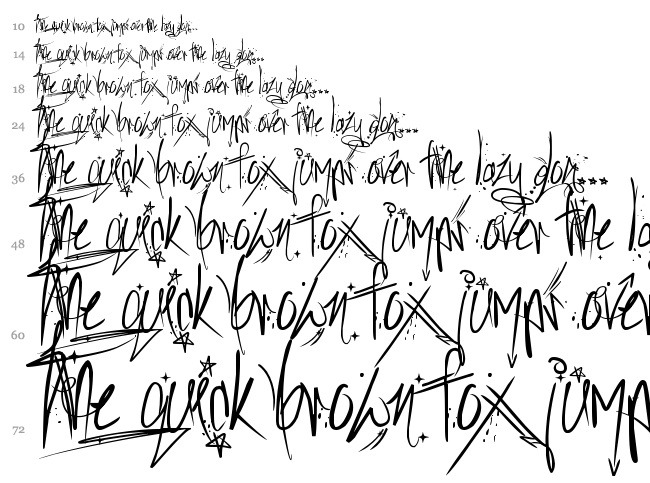 10 The quick brown fox jumps over the lazy dog...
14 The quick brown fox jumps over the lazy dog...
18 The quick brown fox jumps over the lazy dog...
24 The quick brown fox jumps over the lazy dog...
36 The quick brown fox jumps over the lazy dog...
48 The quick brown fox jumps over the
60 The quick brown fox jumps over
72 The quick brown fox jump